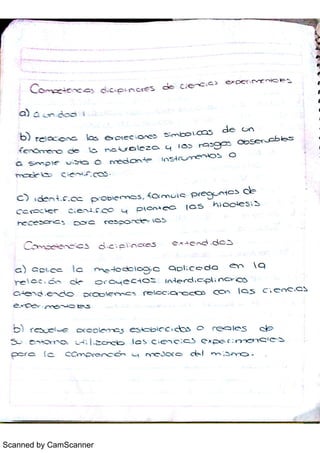 Competencias diciplinares de ciencias experimentales
a)
b) relaciona las expreciones simbolicas de un
fenomeno de la naturaleza y los rasgos observables
a simple vista o mediante instrumentos o
modelos cientificos.
c) identifica problemas, formula preguntas de
caracter cientifico y plantea las hipotesis
necesarias para responderlas
Competencias diciplinares extendidas
a) aplica la metodologia aplicada en la
relación de proyectos interdiciplinarios
atendiendo problemas relacionados con las ciencias
experimentales
b) resuelve problemas establecidos o reales de
su entorno, utilizando las ciencias experimentales
para la comprención y mejora del mismo.
Scanned by CamScanner